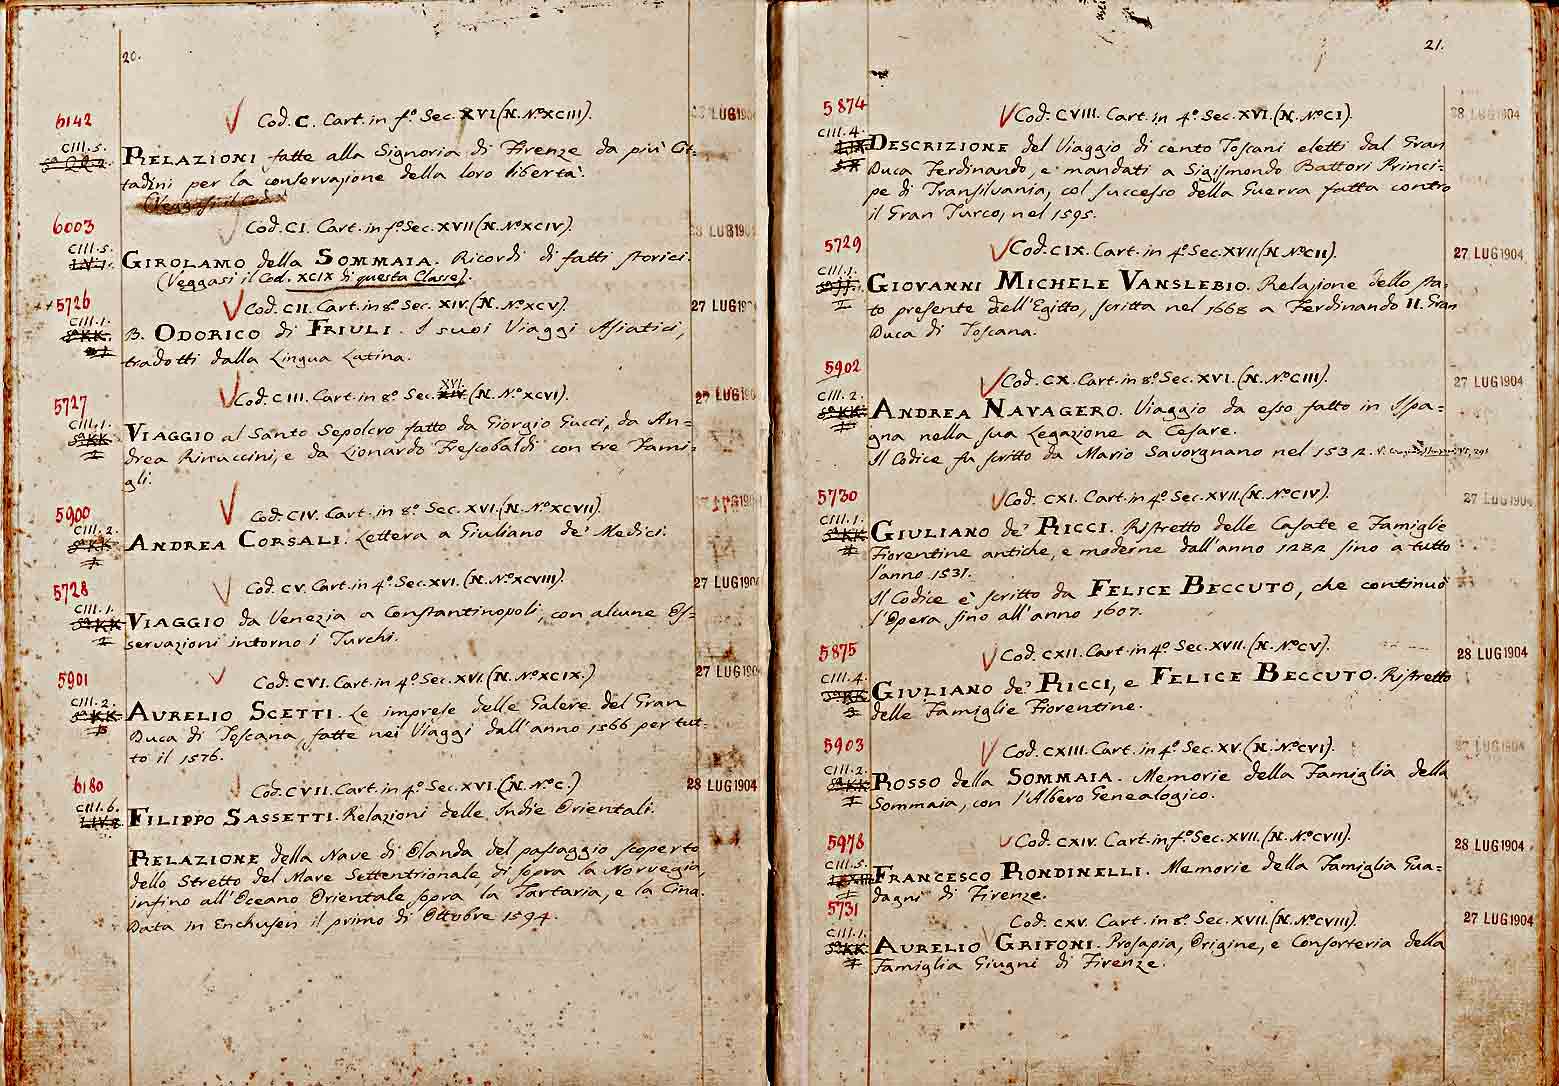 20.
6142
Cod. C. Cart. in fº. Sec. XVI. (N. Nº XCIII).
28 LUG 1904
CIII. 5.
RELAZIONI fatte alla Signoria di Firenze da più Cit=
tadini per la conservazione della loro libertà.
(Veggasi il Cod.
6003
Cod. CI. Cart. in fº. Sec. XVII (N. Nº XCIV).
28 LUG 1904
CIII. 5.
GIROLAMO della SOMMAIA. Ricordi di fatti storici.
(Veggasi il Cod. XCIX di questa Classe).
5726
Cod. CII. Cart. in 8º. Sec. XIV. (N. Nº XCV).
27 LUG 190
CIII. 1.
B. ODORICO di FRIULI. I suoi Viaggi Asiatici,
tradotti dalla Lingua Latina.
5727
XVI.
Cod. CIII. Cart. in 8º. Sec. XIV (N. Nº XCVI).
27 LUG 190
CIII. 1.
VIAGGIO al Santo Sepolcro fatto da Giorgio Gucci, da An=
drea Rinuccini, e da Lionardo Frescobaldi con tre Fami=
gli.
5900
Cod. CIV. Cart. in 8º. Sec. XVI. (N. Nº XCVII).
27 LUG 190
CIII. 2.
ANDREA CORSALI. Lettera a Giuliano de' Medici.
5728
Cod. CV. Cart. in 4º. Sec. XVI. (N. Nº XCVIII).
27 LUG 190
CIII. 1.
VIAGGIO da Venezia a Constantinopoli, con alcune Os=
servazioni intorno i Turchi.
5901
Cod. CVI. Cart. in 4º. Sec. XVI. (N. Nº XCIX.)
27 LUG 190
CIII. 2.
AURELIO SCETTI. Le imprese delle Galere del Gran
Duca di Toscana, fatte nei Viaggi dall'anno 1566 per tut=
to il 1576.
6180
Cod. CVII. Cart. in 4º. Sec. XVI. (N. Nº C.)
28 LUG 1904
CIII. 6.
FILIPPO SASSETTI. Relazioni delle Indie Orientali.
RELAZIONE della Nave di Olanda del passaggio scoperto
dello Stretto del Mare Settentrionale, di sopra la Norvegia,
infino all'Oceano Orientale sopra la Tartaria, e la Cina.
Data in Enchusen il primo di Ottobre 1594.
21.
5874
Cod. CVIII. Cart. in 4º. Sec. XVI. (N. Nº CI).
28 LUG 1904
CIII. 4.
DESCRIZIONE del Viaggio di cento Toscani eletti dal Gran
Duca Ferdinando, e mandati a Sigismondo Battori Princi=
pe di Transilvania, col successo della Guerra fatta contro
il Gran Turco, nel 1595.
5729
Cod. CIX. Cart. in 4º. Sec. XVII (N. Nº CII).
27 LUG 1904
CIII. 1.
GIOVANNI MICHELE VANSLEBIO. Relazione dello sta=
to presente dell'Egitto, scritta nel 1668 a Ferdinando II. Gran
Duca di Toscana.
5902
Cod. CX. Cart. in 8º. Sec. XVI. (N. Nº CIII).
27 LUG 1904
CIII. 2.
ANDREA NAVAGERO. Viaggio da esso fatto in Ispa=
gna nella sua Legazione a Cesare.
Il Codice fu scritto da Mario Savorgnano nel 1532.
5730
Cod. CXI. Cart. in 4º. Sec. XVII. (N. Nº CIV).
27 LUG 1904
CIII. 1.
GIULIANO de' RICCI. Ristretto delle Casate e Famiglie
Fiorentine antiche, e moderne dall'anno 1282 sino a tutto
l'anno 1531.
Il Codice è scritto da FELICE BECCUTO, che continuò
l'Opera sino all'anno 1607.
5875
Cod. CXII. Cart. in 4º. Sec. XVII. (N. Nº CV).
28 LUG 1904
CIII. 4.
GIULIANO de' RICCI, e FELICE BECCUTO. Ristretto
delle Famiglie Fiorentine.
5903
Cod. CXIII. Cart. in 4º. Sec. XV. (N. Nº CVI).
27 LUG 1904
CIII. 2.
ROSSO della SOMMAIA. Memorie della Famiglia della
Sommaia, con l'Albero Genealogico.
5978
Cod. CXIV. Cart. in fº. Sec. XVII. (N. Nº CVII).
28 LUG 1904
CIII. 5.
FRANCESCO RONDINELLI. Memorie della Famiglia Gua=
dagni di Firenze.
5731
Cod. CXV. Cart. in 8º. Sec. XVII. (N. Nº CVIII).
27 LUG 1904
CIII. 1.
AURELIO GRIFONI. Prosapia, Origine, e Consorteria della
Famiglia Giugni di Firenze.